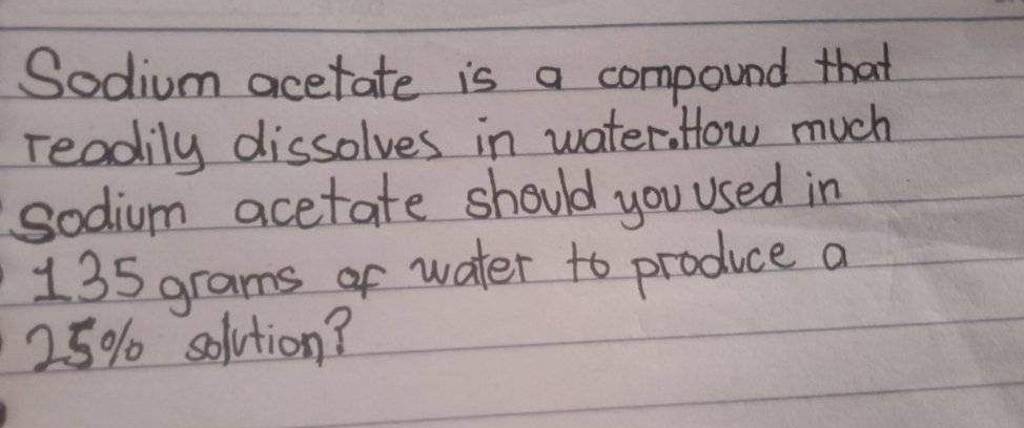 Sodium acetate is a compound that
readily dissolves in water. How much
sodium acetate should you used in
135 grams of water to produce a
25% solution?